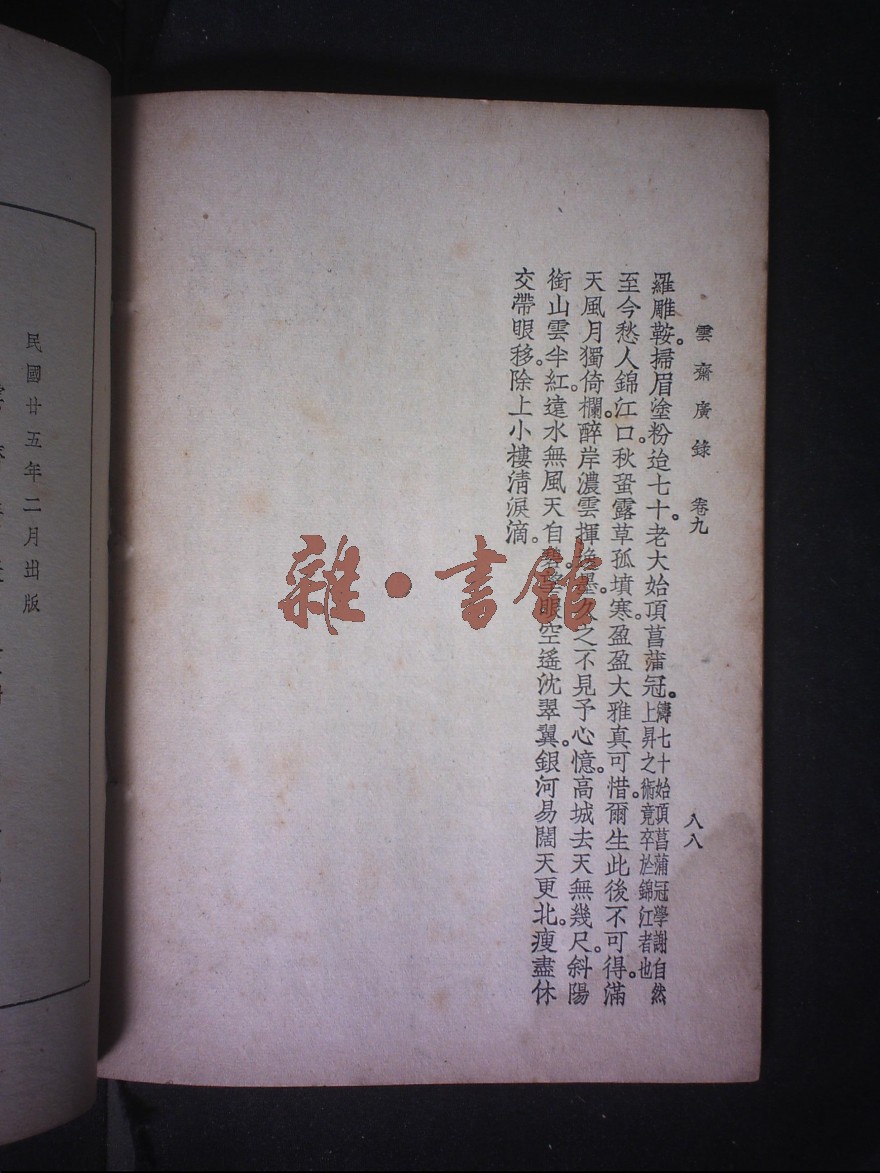 雲齋廣錄 卷九
八八
羅雕鞍。掃眉塗粉迨七十。老大始頂菖蒲冠。濤七十始頂菖蒲冠學謝自然上昇之術竟卒於錦江者也
至今愁人錦江口。秋蛩露草孤墳寒。盈盈大雅真可惜。爾生此後不可得。滿
天風月獨倚欄。醉岸濃雲揮逸墨。久之不見予心憶。高城去天無幾尺。斜陽
銜山雲半紅。遠水無風天自碧。眼空遙沈翠翼。銀河易闊天更北。瘦盡休
交帶眼移。除上小樓清淚滴。
雜·書館
民國廿五年二月出版